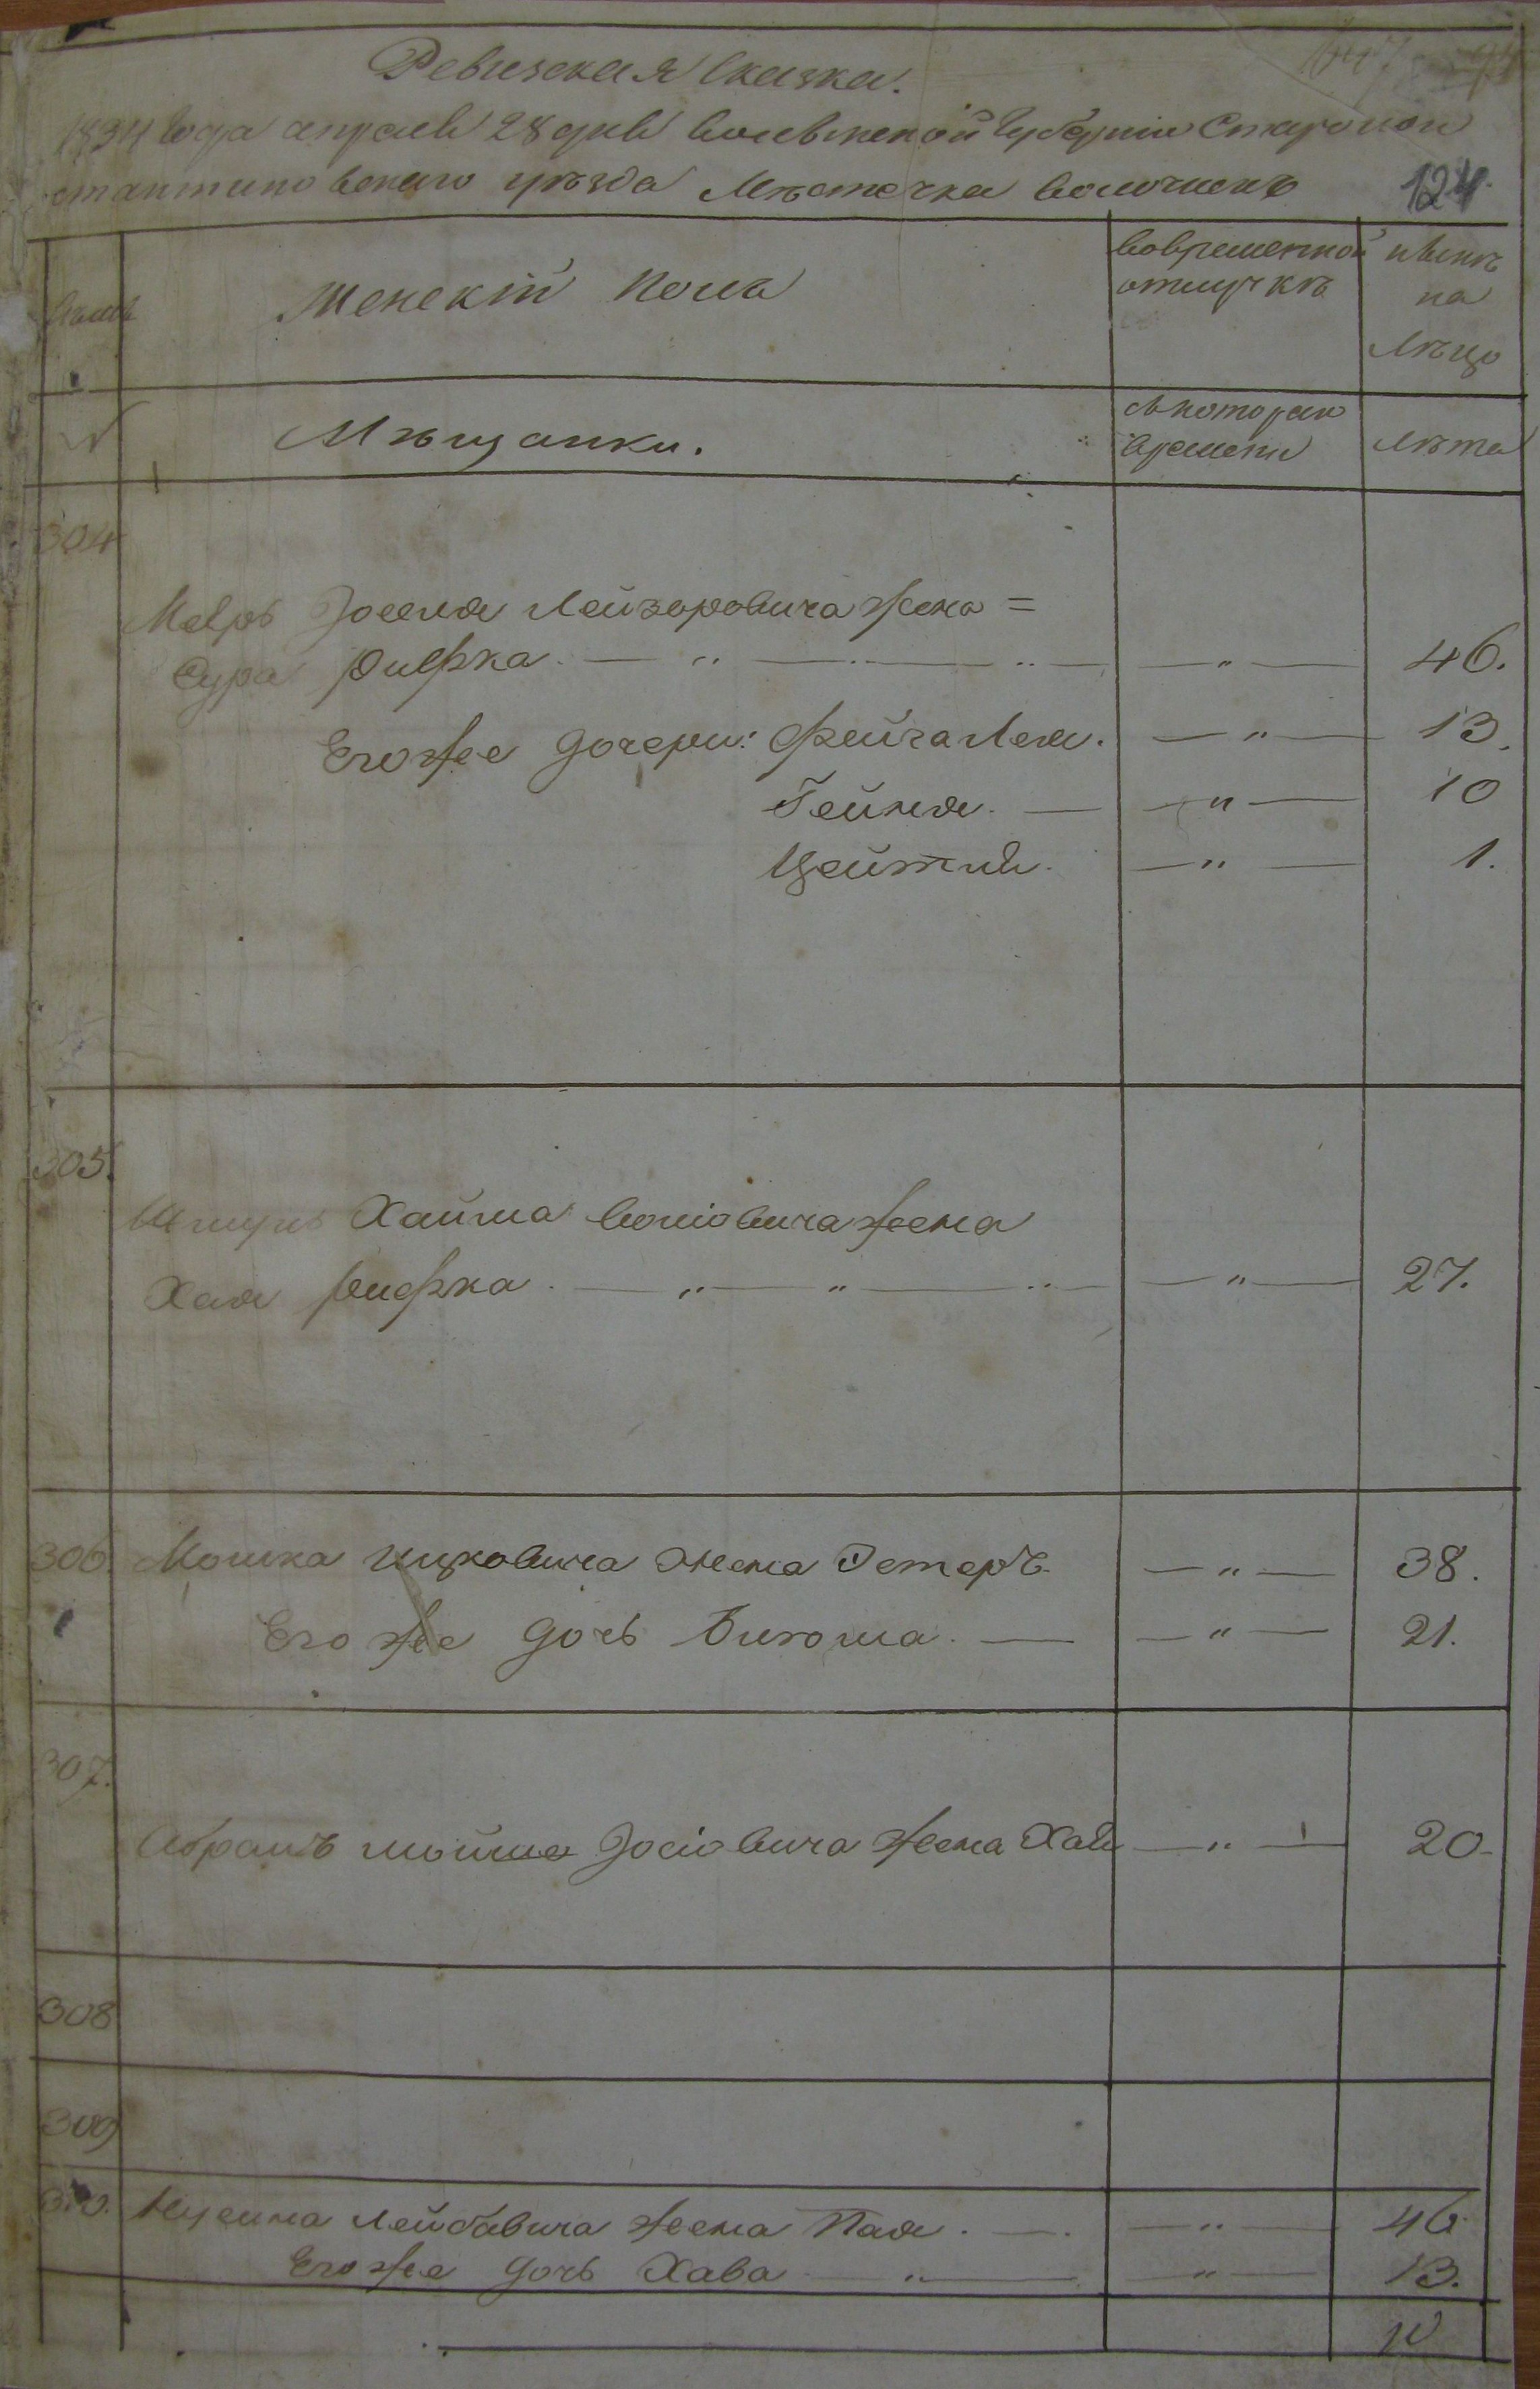 Ревизская Сказка.
1834 года апреля 28 дня Волынской Губернии Старокон
стантиновского уезда Местечка Волочискъ
124.
Женский Пола
вовременной
отлучкъ
ныне
на
лицо
Мъщанки.
съ котораго
времени
лъта
304
Мееръ Иоселя Лейзоровича жена =
Сура Рифка. — „ — „ — „ — 46.
Его же дочери: Фейга Лея. — „ — 13.
Гейня. — — „ — 10
Цейтля. — „ — 1.
305.
Шмуль Хайма Волковича жена
Хая Рифка. — „ — „ — „ — „ — 27.
306. Мошка Ицковича жена Эстеръ — „ — 38.
Его же дочь Билома. — — „ — 21.
307.
Абрамъ Мойше Иосіовича жена Хая — „ — 20
308
309
310. Нусима Лейбавича жена Пая. — — „ — 46
Его же дочь Хава — „ — — „ — 13.
10